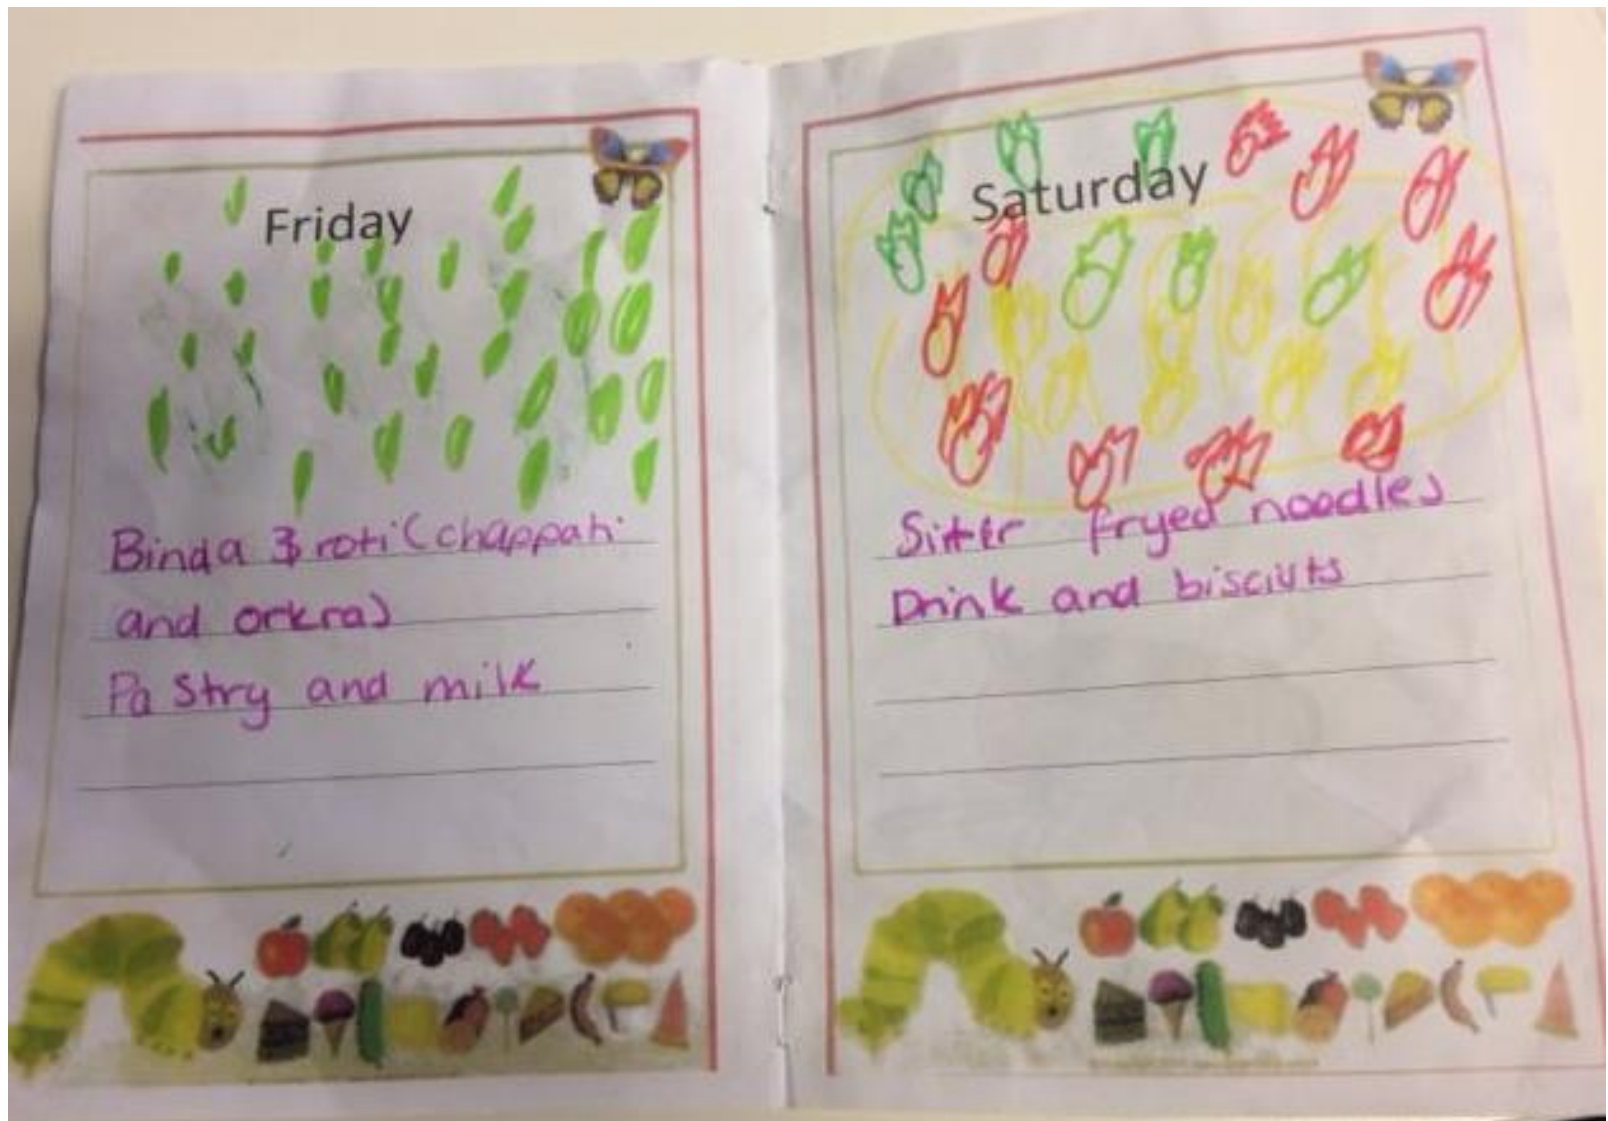 Friday
Binda & roti (chappati
and orkra)
Pastry and milk
Saturday
Sitter fryed noodles
Drink and bisciuts